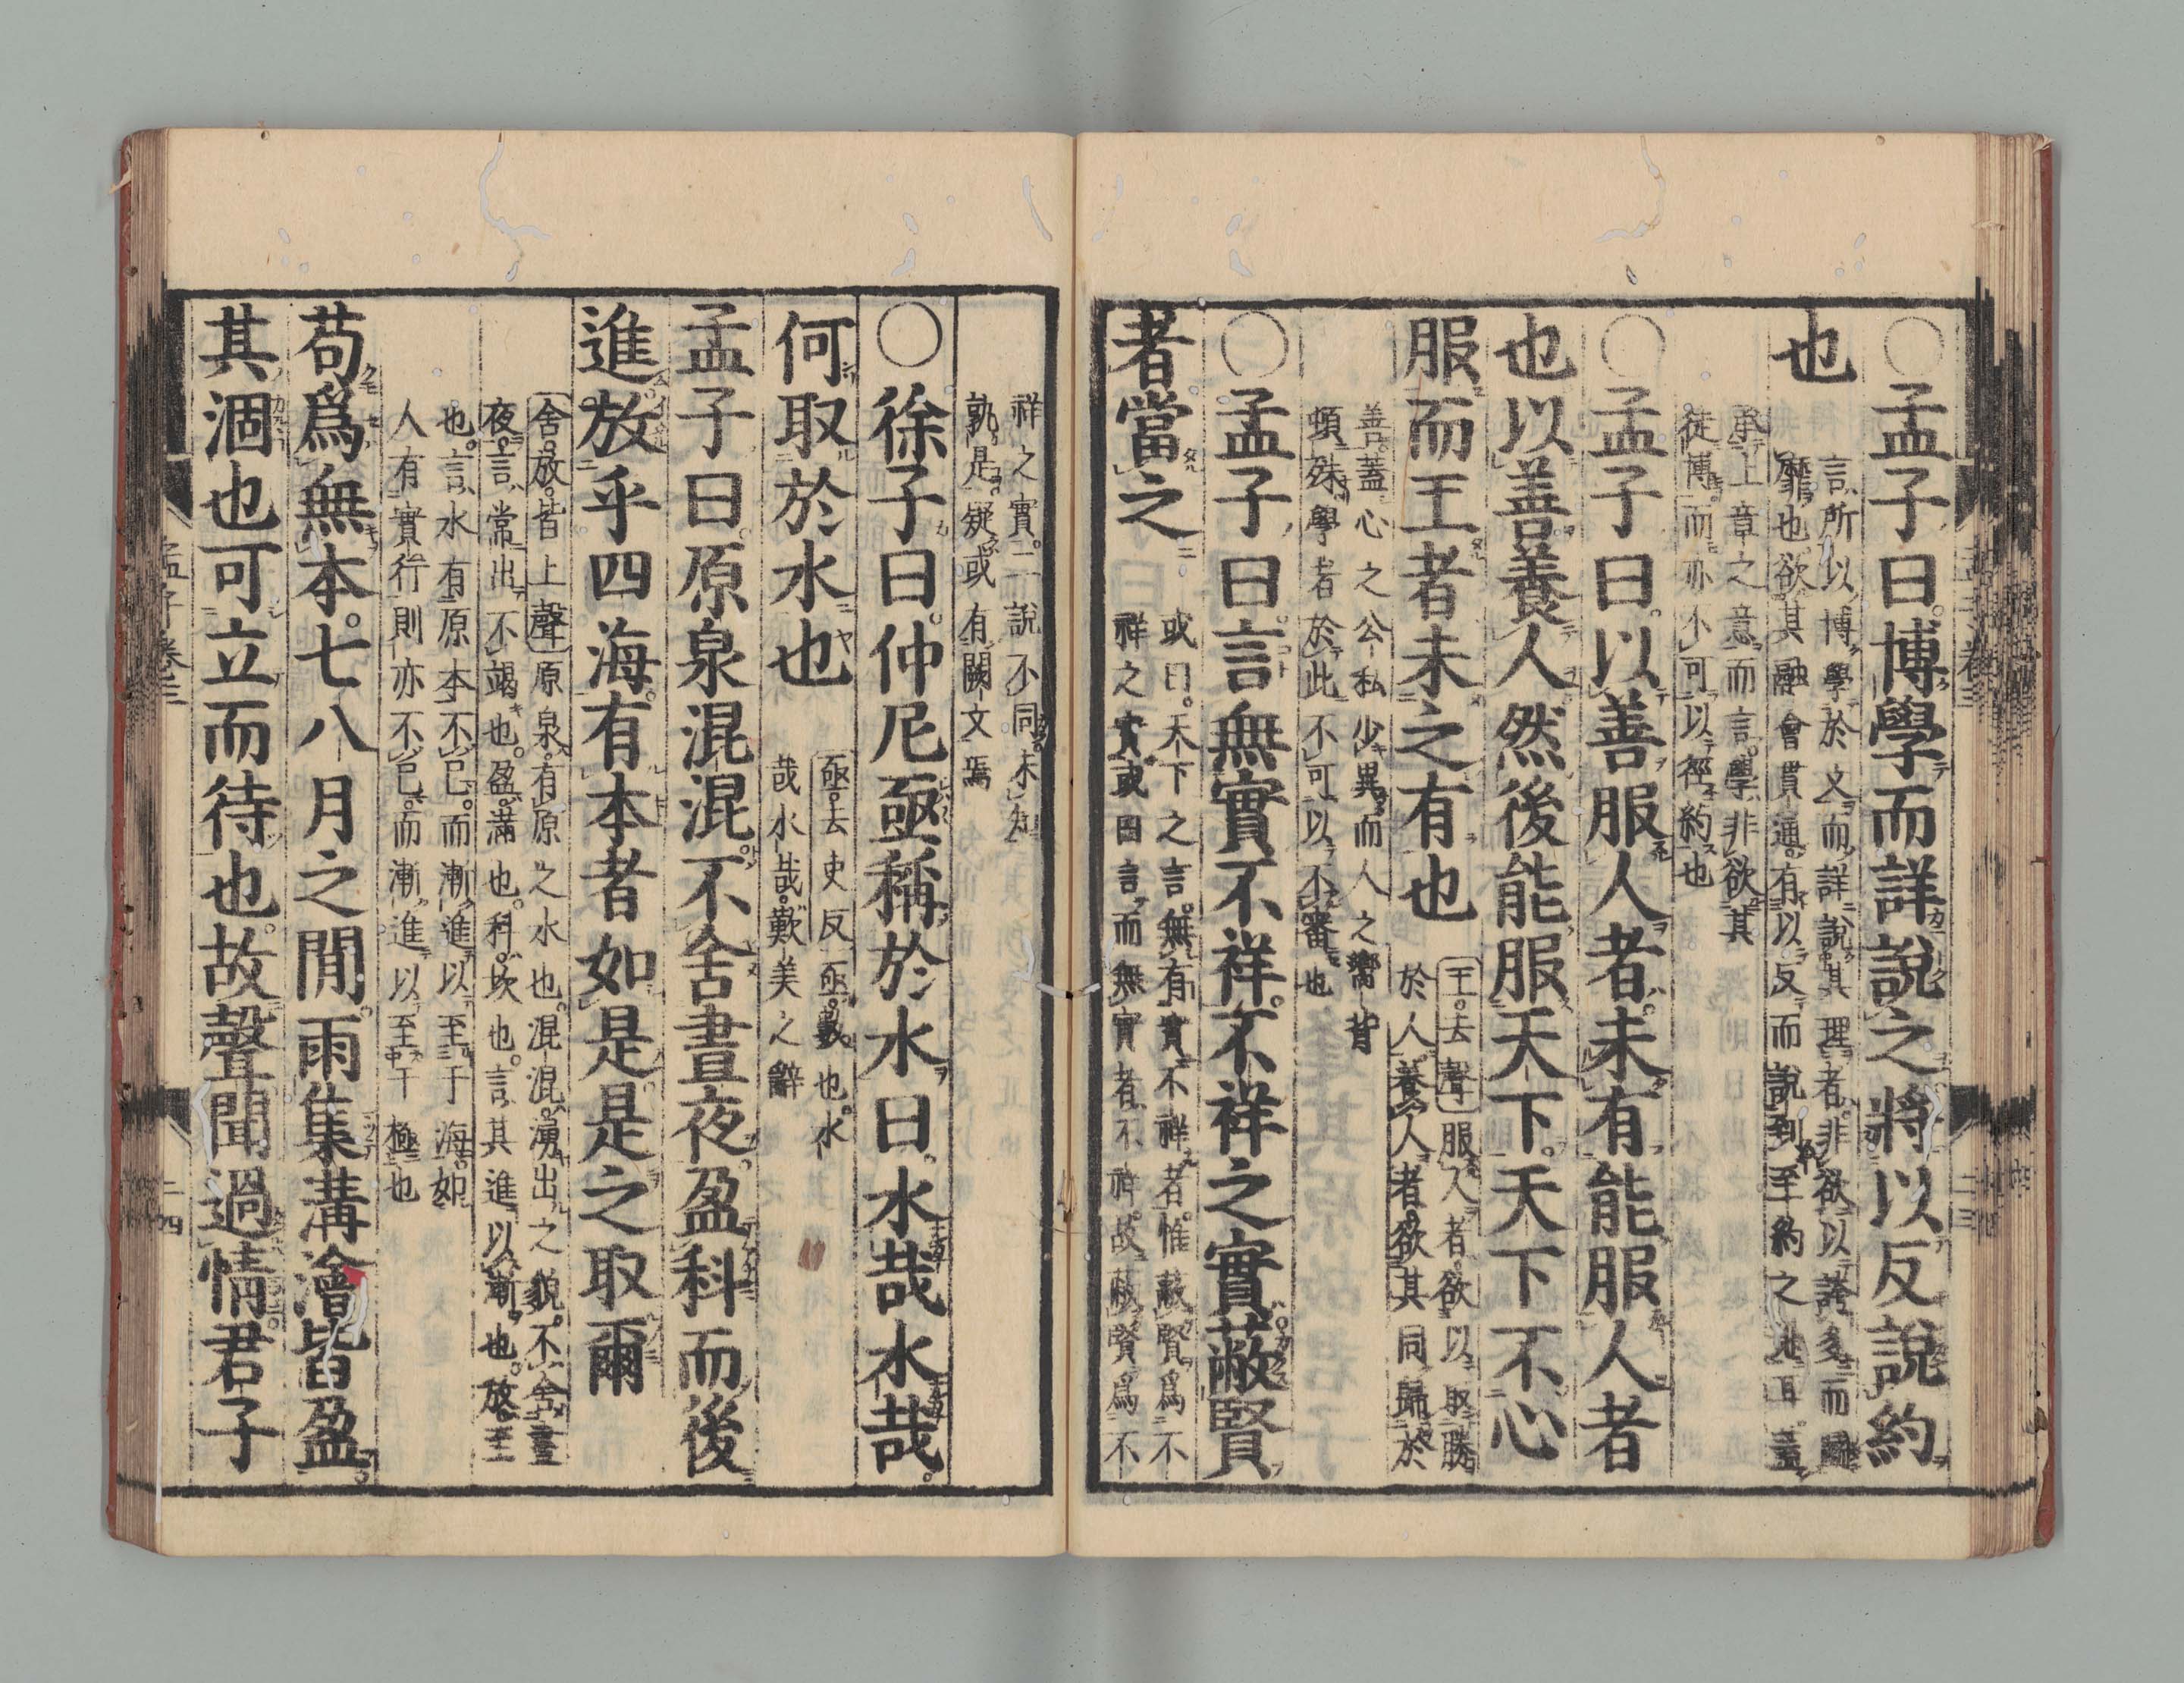 ○孟子曰博學而詳說之將以反說約
也
言所以博學於文而詳說其理者非欲以誇多而鬭
靡也欲其融會貫通有以反而說到至約之地耳蓋
承上章之意而言學非欲其
徒博而亦不可以徑約也
○孟子曰以善服人者未有能服人者
也以善養人然後能服天下天下不心
服而王者未之有也
王去聲服人者欲以取勝
於人養人者欲其同歸於
善蓋心之公私少異而人之嚮背
頓殊學者於此不可以不審也
○孟子曰言無實不祥不祥之實蔽賢
者當之
或曰天下之言無有實不祥者惟蔽賢爲不
祥之實或曰言而無實者不祥故蔽賢爲不
祥之實二說不同未知
孰是疑或有闕文焉
○徐子曰仲尼亟稱於水曰水哉水哉
何取於水也
亟去吏反亟數也水
哉水哉歎美之辭
孟子曰原泉混混不舍晝夜盈科而後
進放乎四海有本者如是是之取爾
舍放皆上聲原泉有原之水也混混湧出之貌不舍晝
夜言常出不竭也盈滿也科坎也言其進以漸也放至
也言水有原本不已而漸進以至于海如
人有實行則亦不已而漸進以至于極也
苟爲無本七八月之閒雨集溝澮皆盈
其涸也可立而待也故聲聞過情君子
孟子卷三
二四